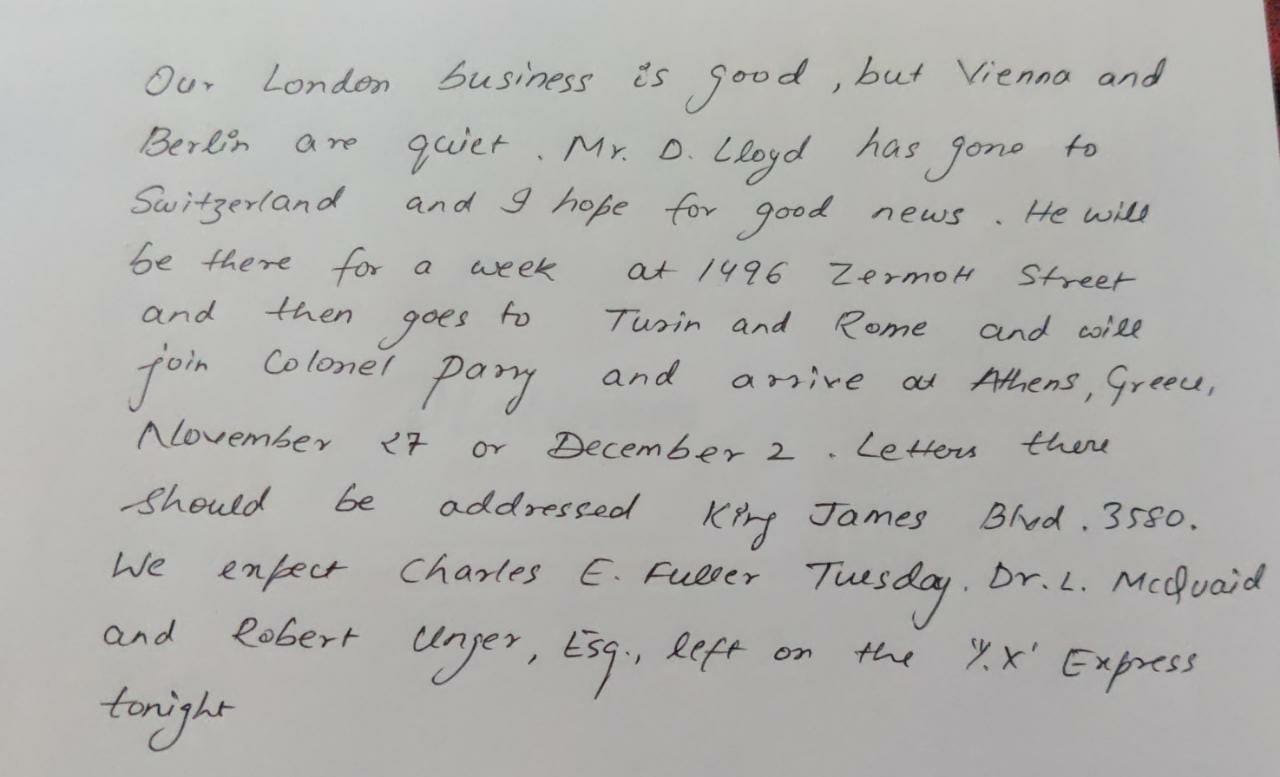 Our London business is good, but Vienna and
Berlin are quiet. Mr. D. Lloyd has gone to
Switzerland and I hope for good news. He will
be there for a week at 1496 Zermott Street
and then goes to Turin and Rome and will
join Colonel Parry and arrive at Athens, Greece,
November 27 or December 2. Letters there
should be addressed King James Blvd. 3580.
We expect Charles E. Fuller Tuesday. Dr. L. McQuaid
and Robert Unger, Esq., left on the 'Y.X' Express
tonight